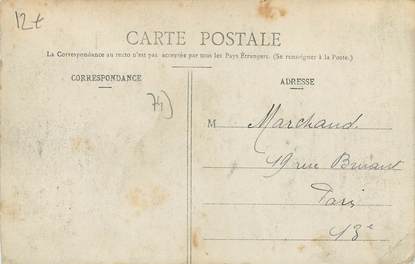 12€
CARTE POSTALE
La Correspondance au recto n'est pas acceptée par tous les Pays Étrangers. (Se renseigner à la Poste.)
CORRESPONDANCE
ADRESSE
74)
M Marchand.
49 rue Bruant
Paris
13e